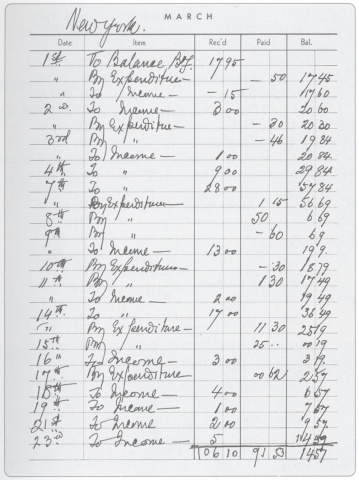 MARCH
New York.
Date Item Rec'd Paid Bal.
1st To Balance Bf. 17 95
" By Expenditure — — 50 17 45
" To Income — — 15 17 60
2nd To Income — 3 00 20 60
" By Expenditure — — 30 20 30
3rd By " — 46 19 84
" To Income — 1 00 20 84
4th To " 9 00 29 84
7th To " 28 00 57 84
" By Expenditure 1 15 56 69
8th By " 50 6 69
9th By " — 60 6 9
" To Income — 13 00 19 9.
10th By Expenditure — — 30 18 79
11th By " 1 30 17 49
" To Income — 2 00 19 49
14th To " 17 00 36 49
" By Expenditure — 11 30 25 19
15th By " 25 .. 00 19
16 " To Income — 3 00 3 19.
17th By Expenditure 00 62 2 57
18th To Income — 4 00 6 57
19th To Income — 1 00 7 57
21st To Income 2 00 9 57
23rd To Income — 5 14 57
106 10 91 53 14 57